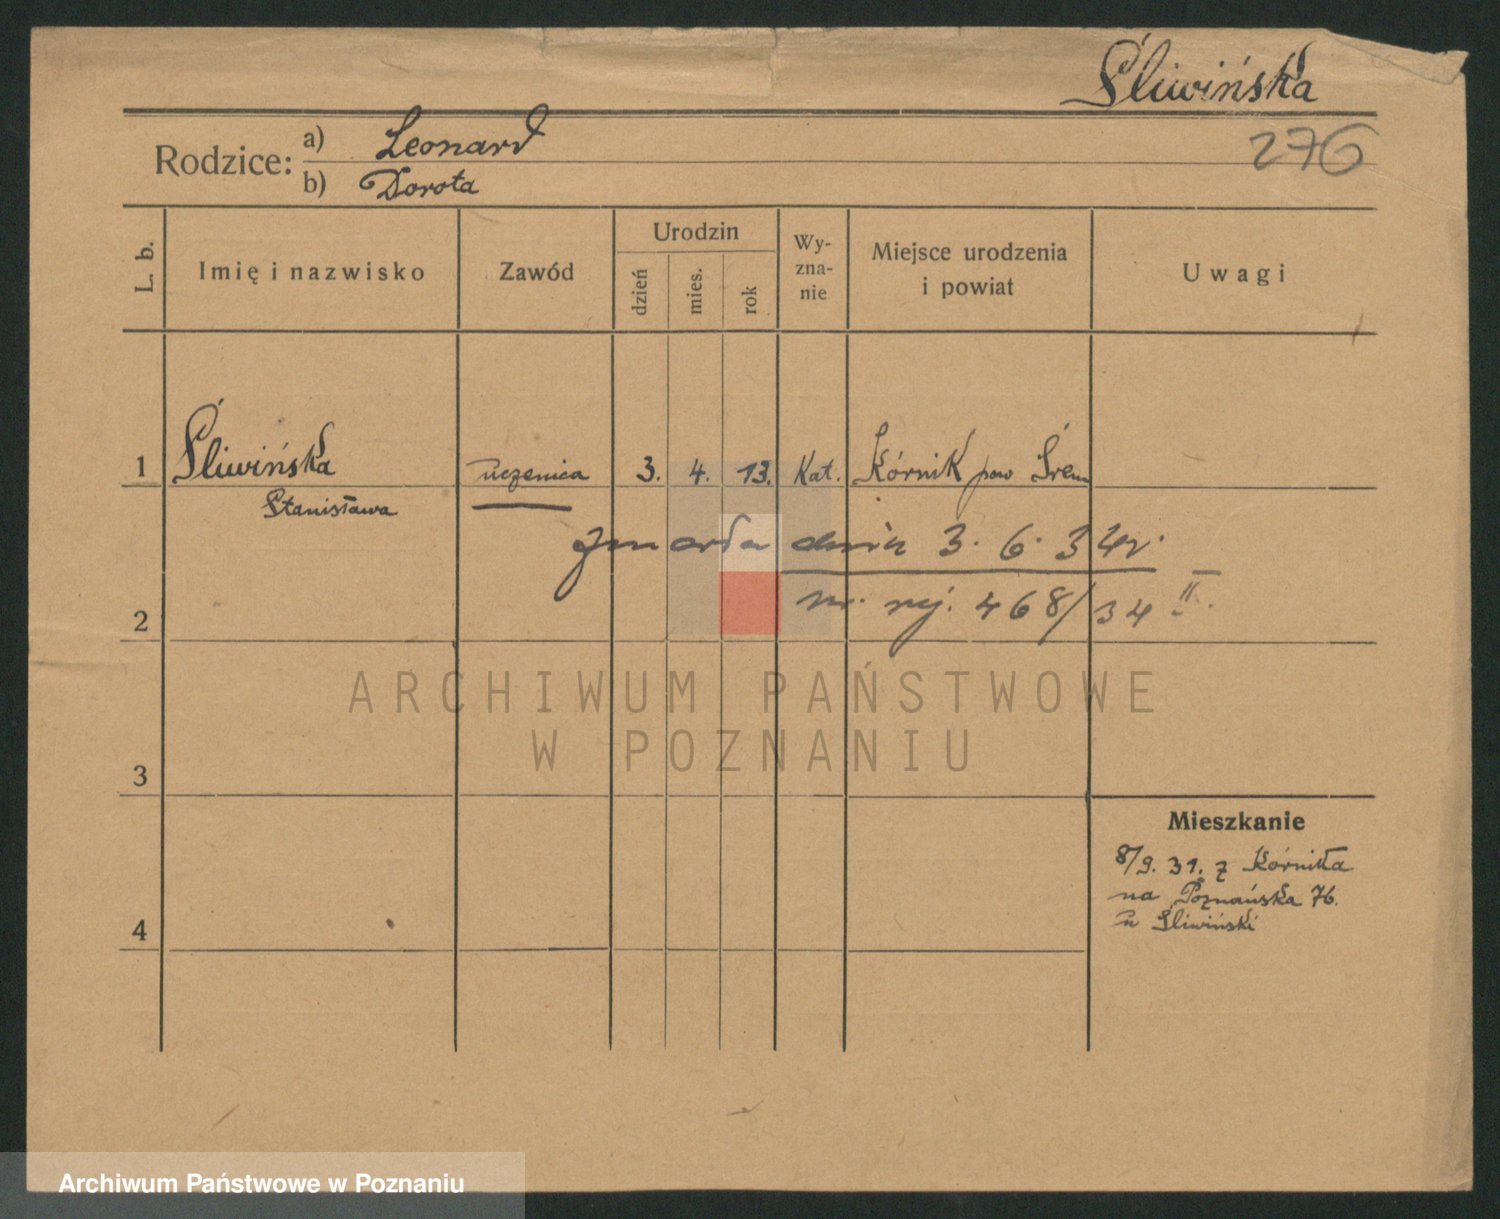 Śliwińska
276
Rodzice: a) Leonard
b) Dorota
L. b.
Imię i nazwisko
Zawód
Urodzin
dzień
mies.
rok
Wy-
zna-
nie
Miejsce urodzenia
i powiat
Uwagi
1 Śliwińska uczenica 3. 4. 13. Kat. Kórnik pow Śrem
Stanisława
zmarła dnia 3. 6. 34r.
2 nr. rej. 468/34 II.
ARCHIWUM PAŃSTWOWE
W POZNANIU
3
Mieszkanie
8/9. 31. z Kórnika
na Poznańska 76.
u Śliwiński
4
Archiwum Państwowe w Poznaniu